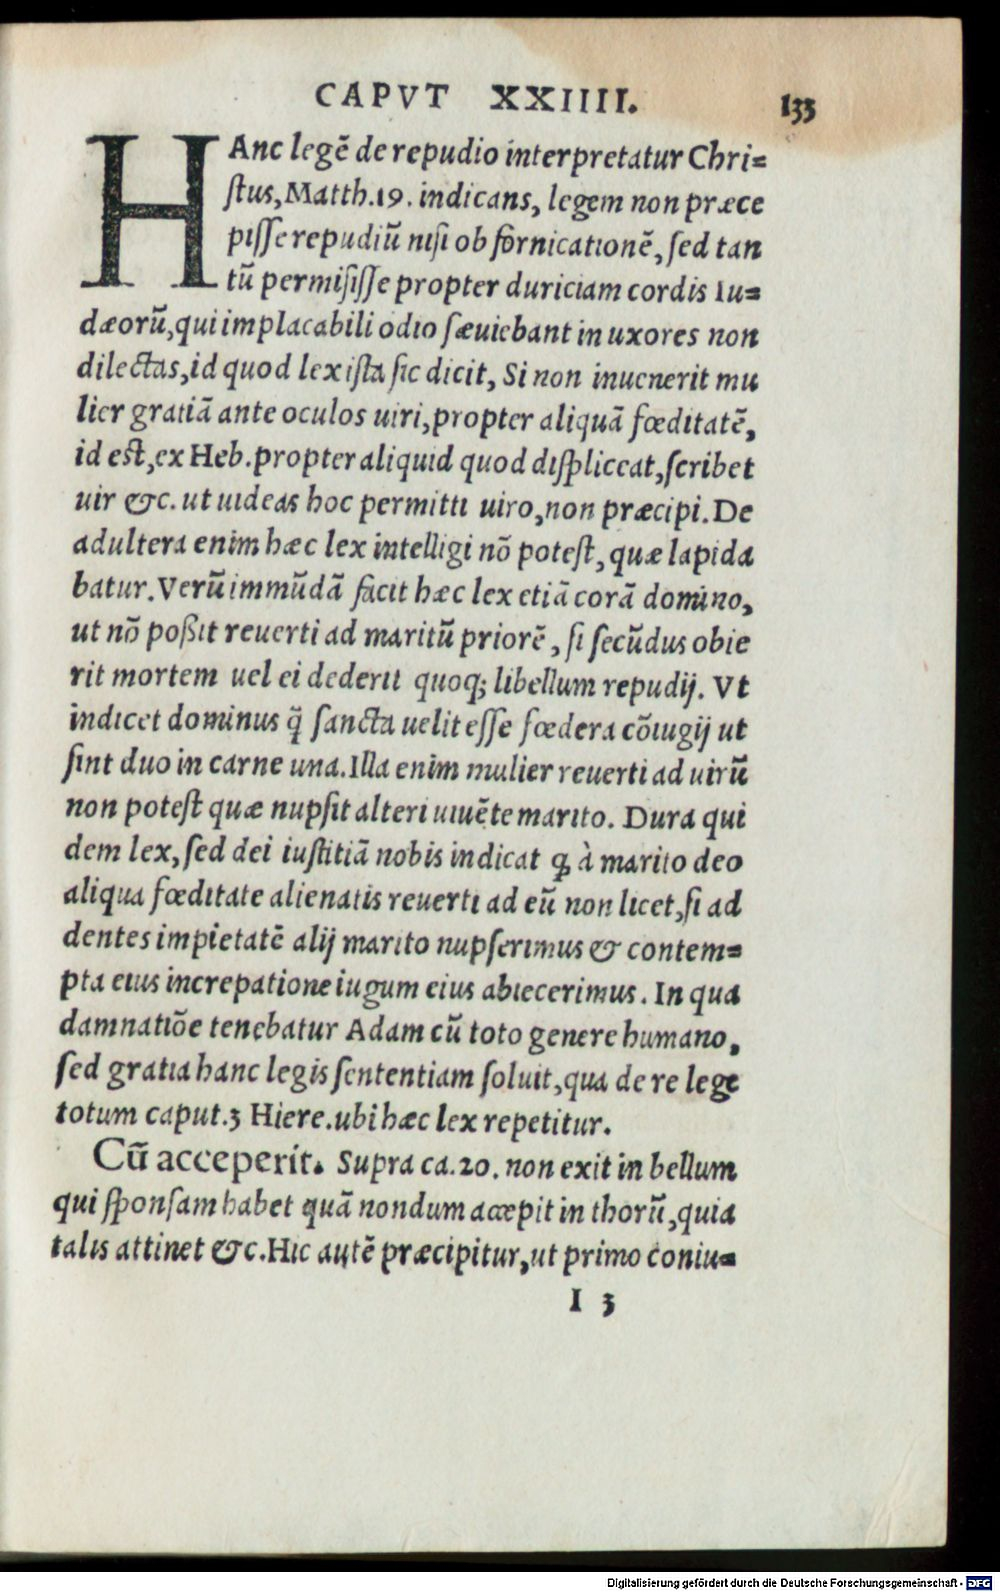 CAPVT XXIIII. 133
HAnc legẽ de repudio interpretatur Chri=
ſtus, Matth.19. indicans, legem non præce
piſſe repudiũ niſi ob fornicationẽ, ſed tan
tũ permiſiſſe propter duriciam cordis Iu=
dæorũ, qui implacabili odio ſæuiebant in uxores non
dilectas, id quod lex iſta ſic dicit, Si non inuenerit mu
lier gratiã ante oculos uiri, propter aliquã fœditatẽ,
id eſt, ex Heb. propter aliquid quod diſpliceat, ſcribet
uir &c. ut uideas hoc permitti uiro, non præcipi. De
adultera enim hæc lex intelligi nõ poteſt, quæ lapida
batur. Verũ immũdã facit hæc lex etiã corã domino,
ut nõ poßit reuerti ad maritũ priorẽ, ſi ſecũdus obie
rit mortem uel ei dederit quoq; libellum repudij. Vt
indicet dominus q̃ ſancta uelit eſſe fœdera cõiugij ut
ſint duo in carne una. Illa enim mulier reuerti ad uirũ
non poteſt quæ nupſit alteri uiuẽte marito. Dura qui
dem lex, ſed dei iuſtitiã nobis indicat ꝙ à marito deo
aliqua fœditate alienatis reuerti ad eũ non licet, ſi ad
dentes impietatẽ alij marito nupſerimus & contem=
pta eius increpatione iugum eius abiecerimus. In qua
damnatiõe tenebatur Adam cũ toto genere humano,
ſed gratia hanc legis ſententiam ſoluit, qua de re lege
totum caput.3 Hiere. ubi hæc lex repetitur.
Cũ acceperit. Supra ca.20. non exit in bellum
qui ſponſam habet quã nondum accepit in thorũ, quia
talis attinet &c. Hic autẽ præcipitur, ut primo coniu=
I 3
Digitalisierung gefördert durch die Deutsche Forschungsgemeinschaft - DFG